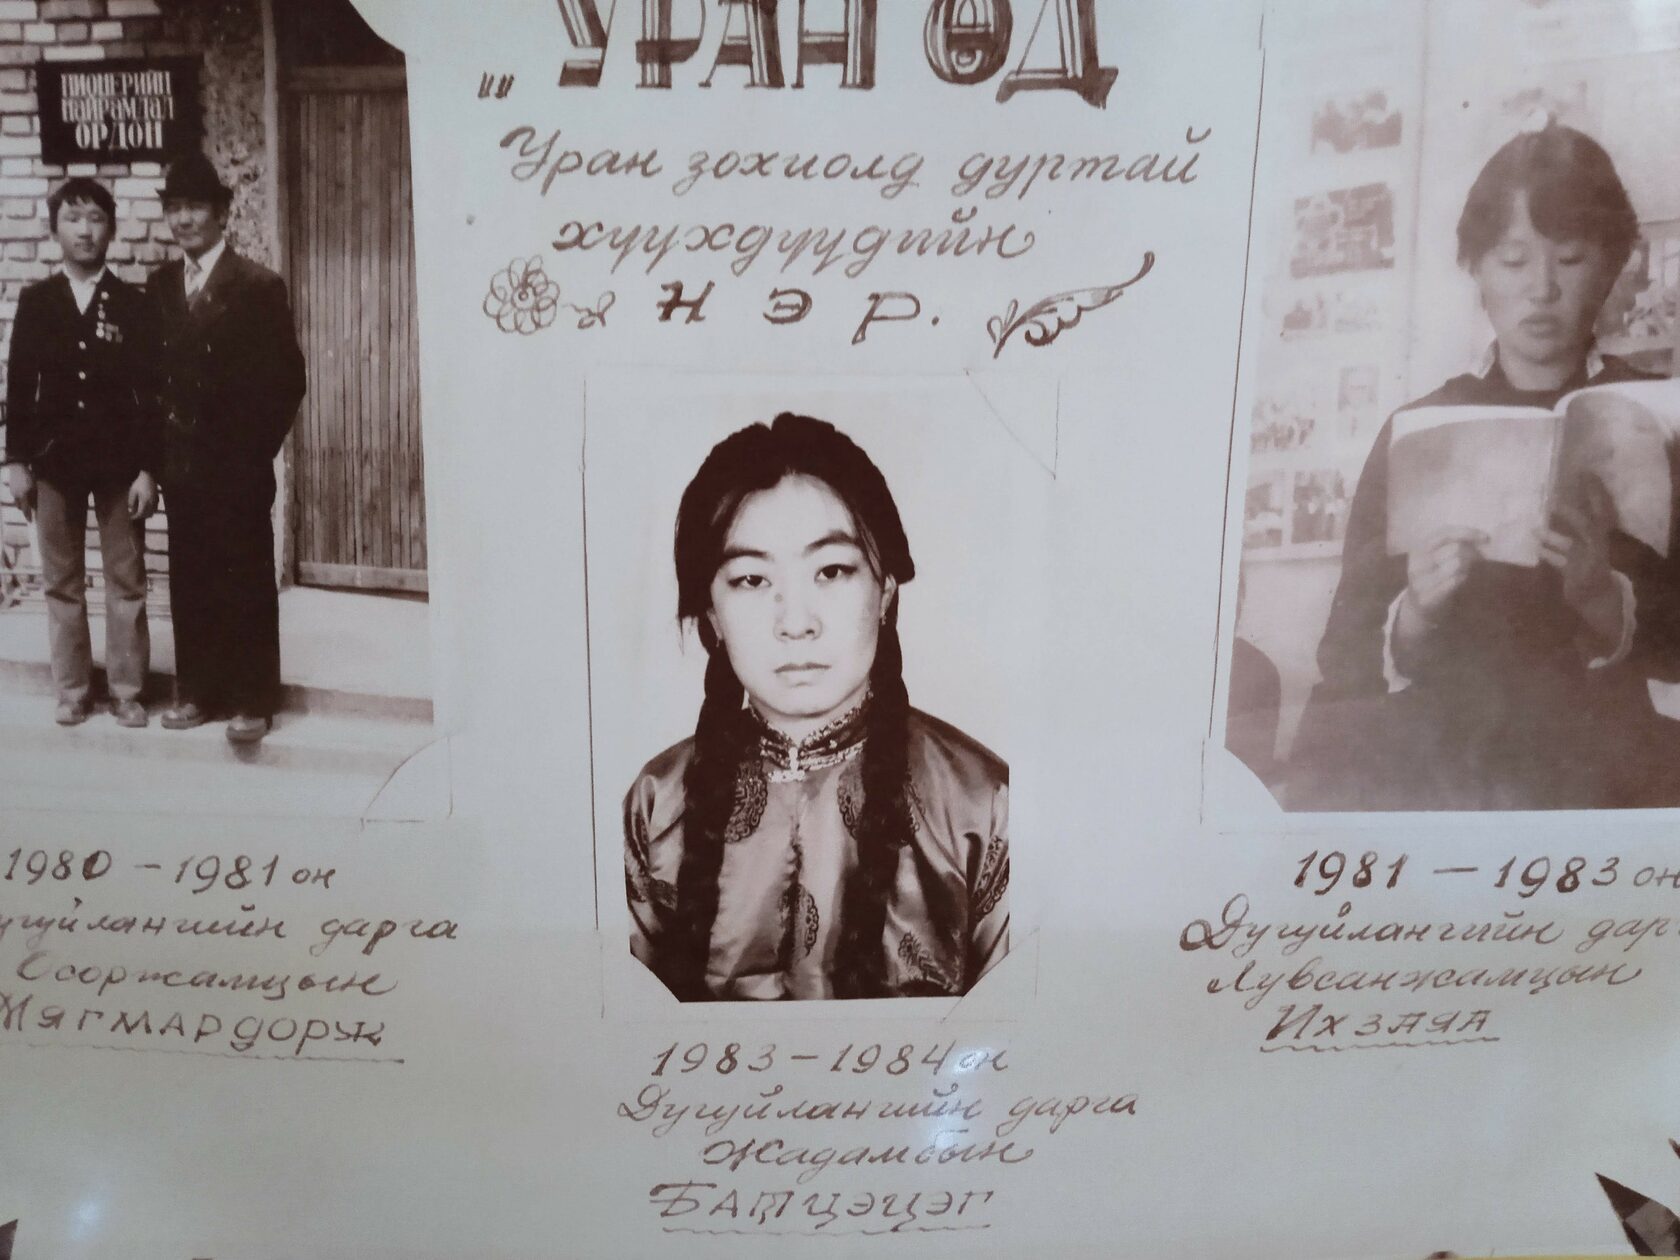 ПИОНЕРИЙН
НАЙРАМДАЛ
ОРДОН
„УРАН ӨД
Уран зохиолд дуртай
хүүхдүүдийн
НЭР.
1980 – 1981 он
угуйлангийн дарга
Осоржамцын
МЯГМАРДОРЖ
1983 – 1984 он
Дугуйлангийн дарга
Жадамбын
БАТЦЭЦЭГ
1981 – 1983 он
Дугуйлангийн дар
Лувсанжамцын
ИХЗАЯА